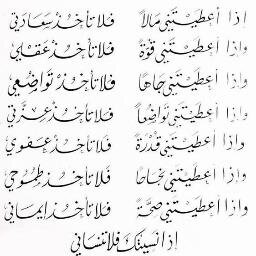 إذا أعطيتني مالاً فلا تأخذ سعادتي
وإذا أعطيتني قوّة فلا تأخذ عقلي
وإذا أعطيتني جاهاً فلا تأخذ تواضعي
وإذا أعطيتني تواضعاً فلا تأخذ عزتي
وإذا أعطيتني قدرة فلا تأخذ عفوي
وإذا أعطيتني نجاحاً فلا تأخذ طموحي
وإذا أعطيتني صحّة فلا تأخذ إيماني
إذا نسيتك فلا تنساني